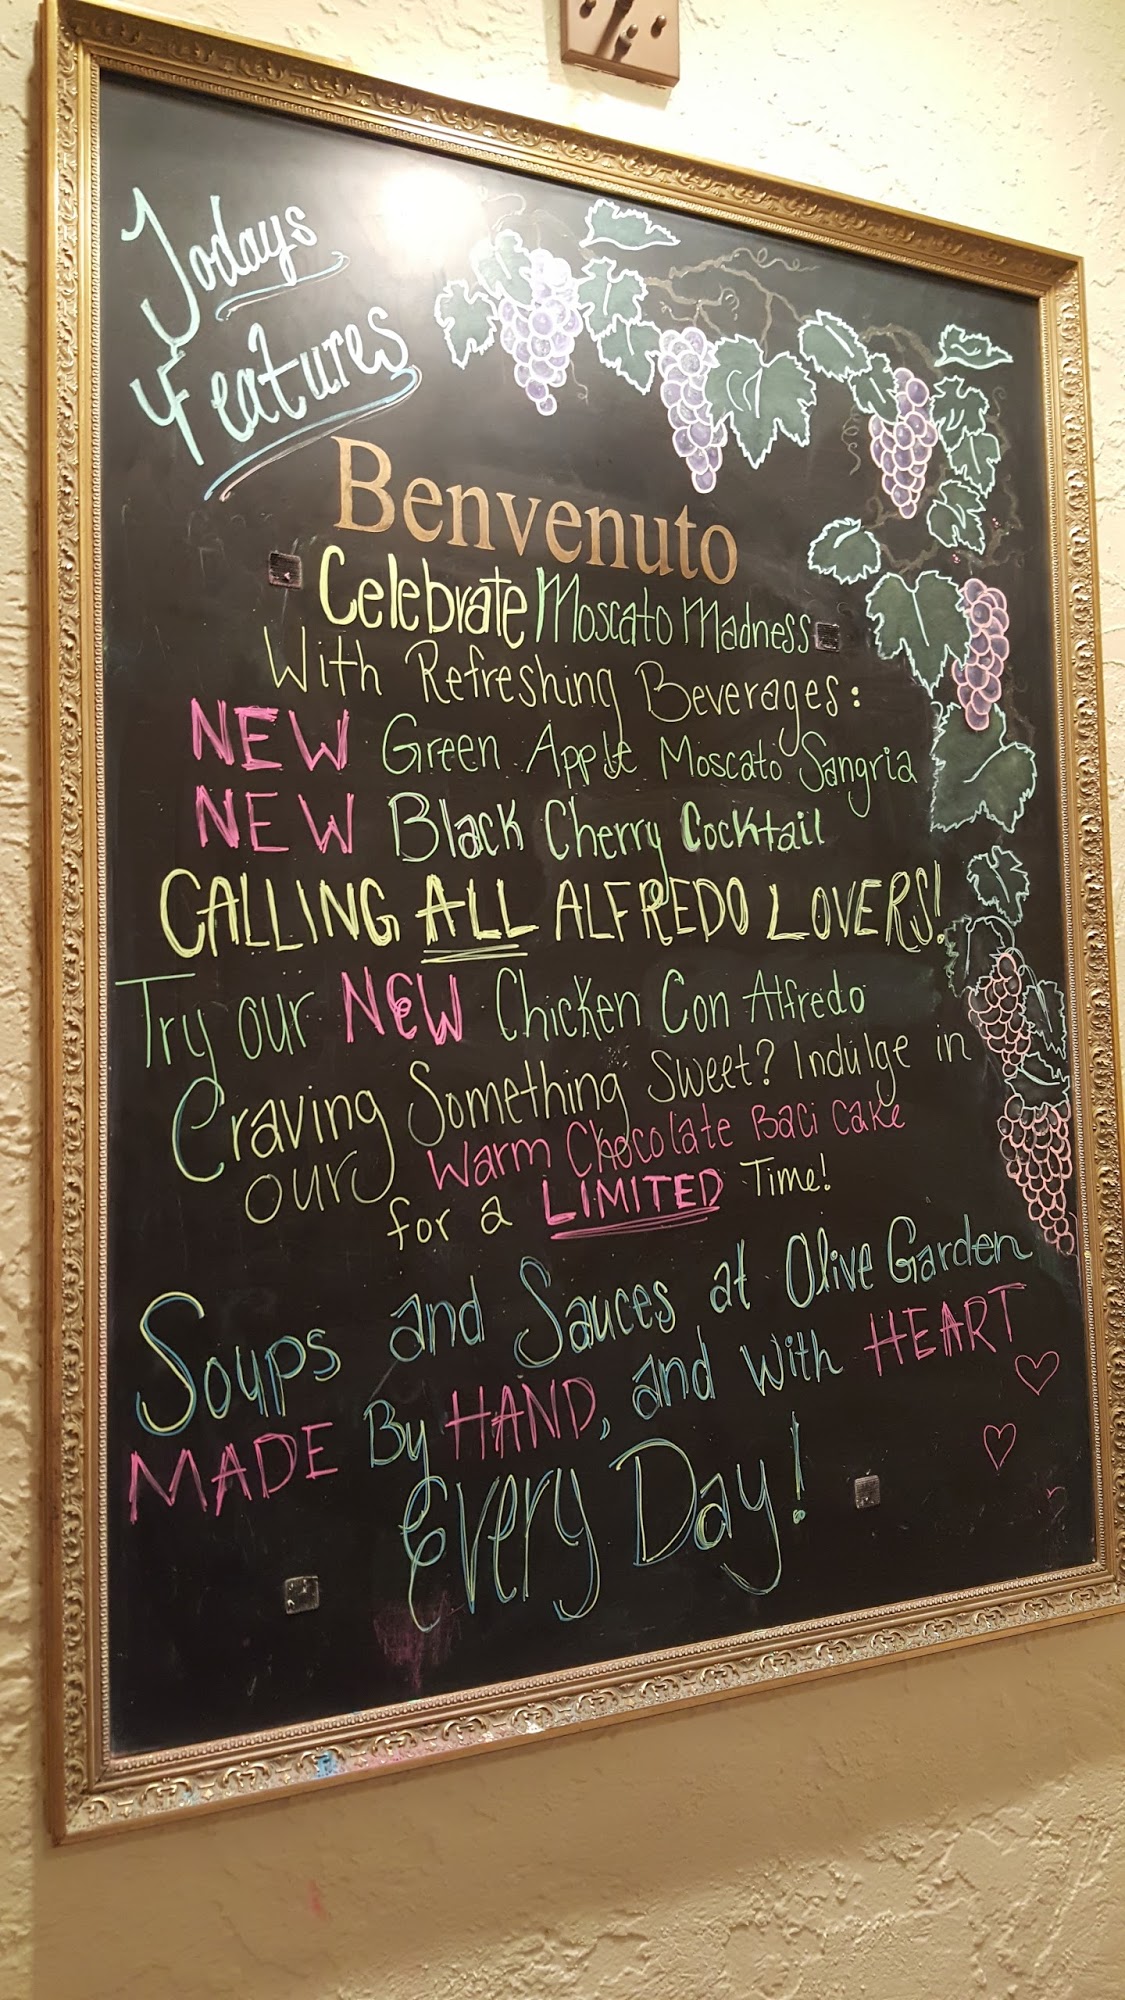 Todays
Features
Benvenuto
Celebrate Moscato Madness
With Refreshing Beverages:
NEW Green Apple Moscato Sangria
NEW Black Cherry Cocktail
CALLING ALL ALFREDO LOVERS!
Try our NEW Chicken Con Alfredo
Craving Something Sweet? Indulge in
our Warm Chocolate Baci Cake
for a LIMITED Time!
Soups and Sauces at Olive Garden
MADE By HAND, and with HEART
Every Day!